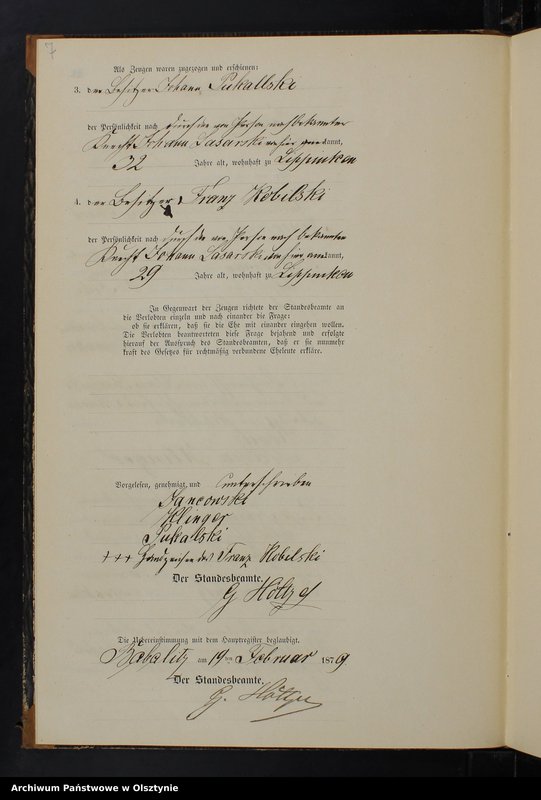 7
Als Zeugen waren zugezogen und erschienen:
3. der Besitzer Johann Pukallski
der Persönlichkeit nach durch den von Person nach bekannten
Knecht Johann Lasarski kannt,
32 Jahre alt, wohnhaft zu Lippinken
4. der Besitzer Franz Kobilski
der Persönlichkeit nach durch den von Person nach bekannten
Knecht Johann Lasarski kannt,
29 Jahre alt, wohnhaft zu Lippinken
In Gegenwart der Zeugen richtete der Standesbeamte an
die Verlobten einzeln und nach einander die Frage:
ob sie erklären, daß sie die Ehe mit einander eingehen wollen.
Die Verlobten beantworteten diese Frage bejahend und erfolgte
hierauf der Ausspruch des Standesbeamten, daß er sie nunmehr
kraft des Gesetzes für rechtmäßig verbundene Eheleute erkläre.
Vorgelesen, genehmigt und unterschrieben
Jancowski
Illinger
Pukallski
+++ Handzeichen des Franz Kobilski
Der Standesbeamte.
G Höltzel
Die Uebereinstimmung mit dem Hauptregister beglaubigt.
Babalitz am 19ten Februar 1879
Der Standesbeamte.
G.
Archiwum Państwowe w Olsztynie